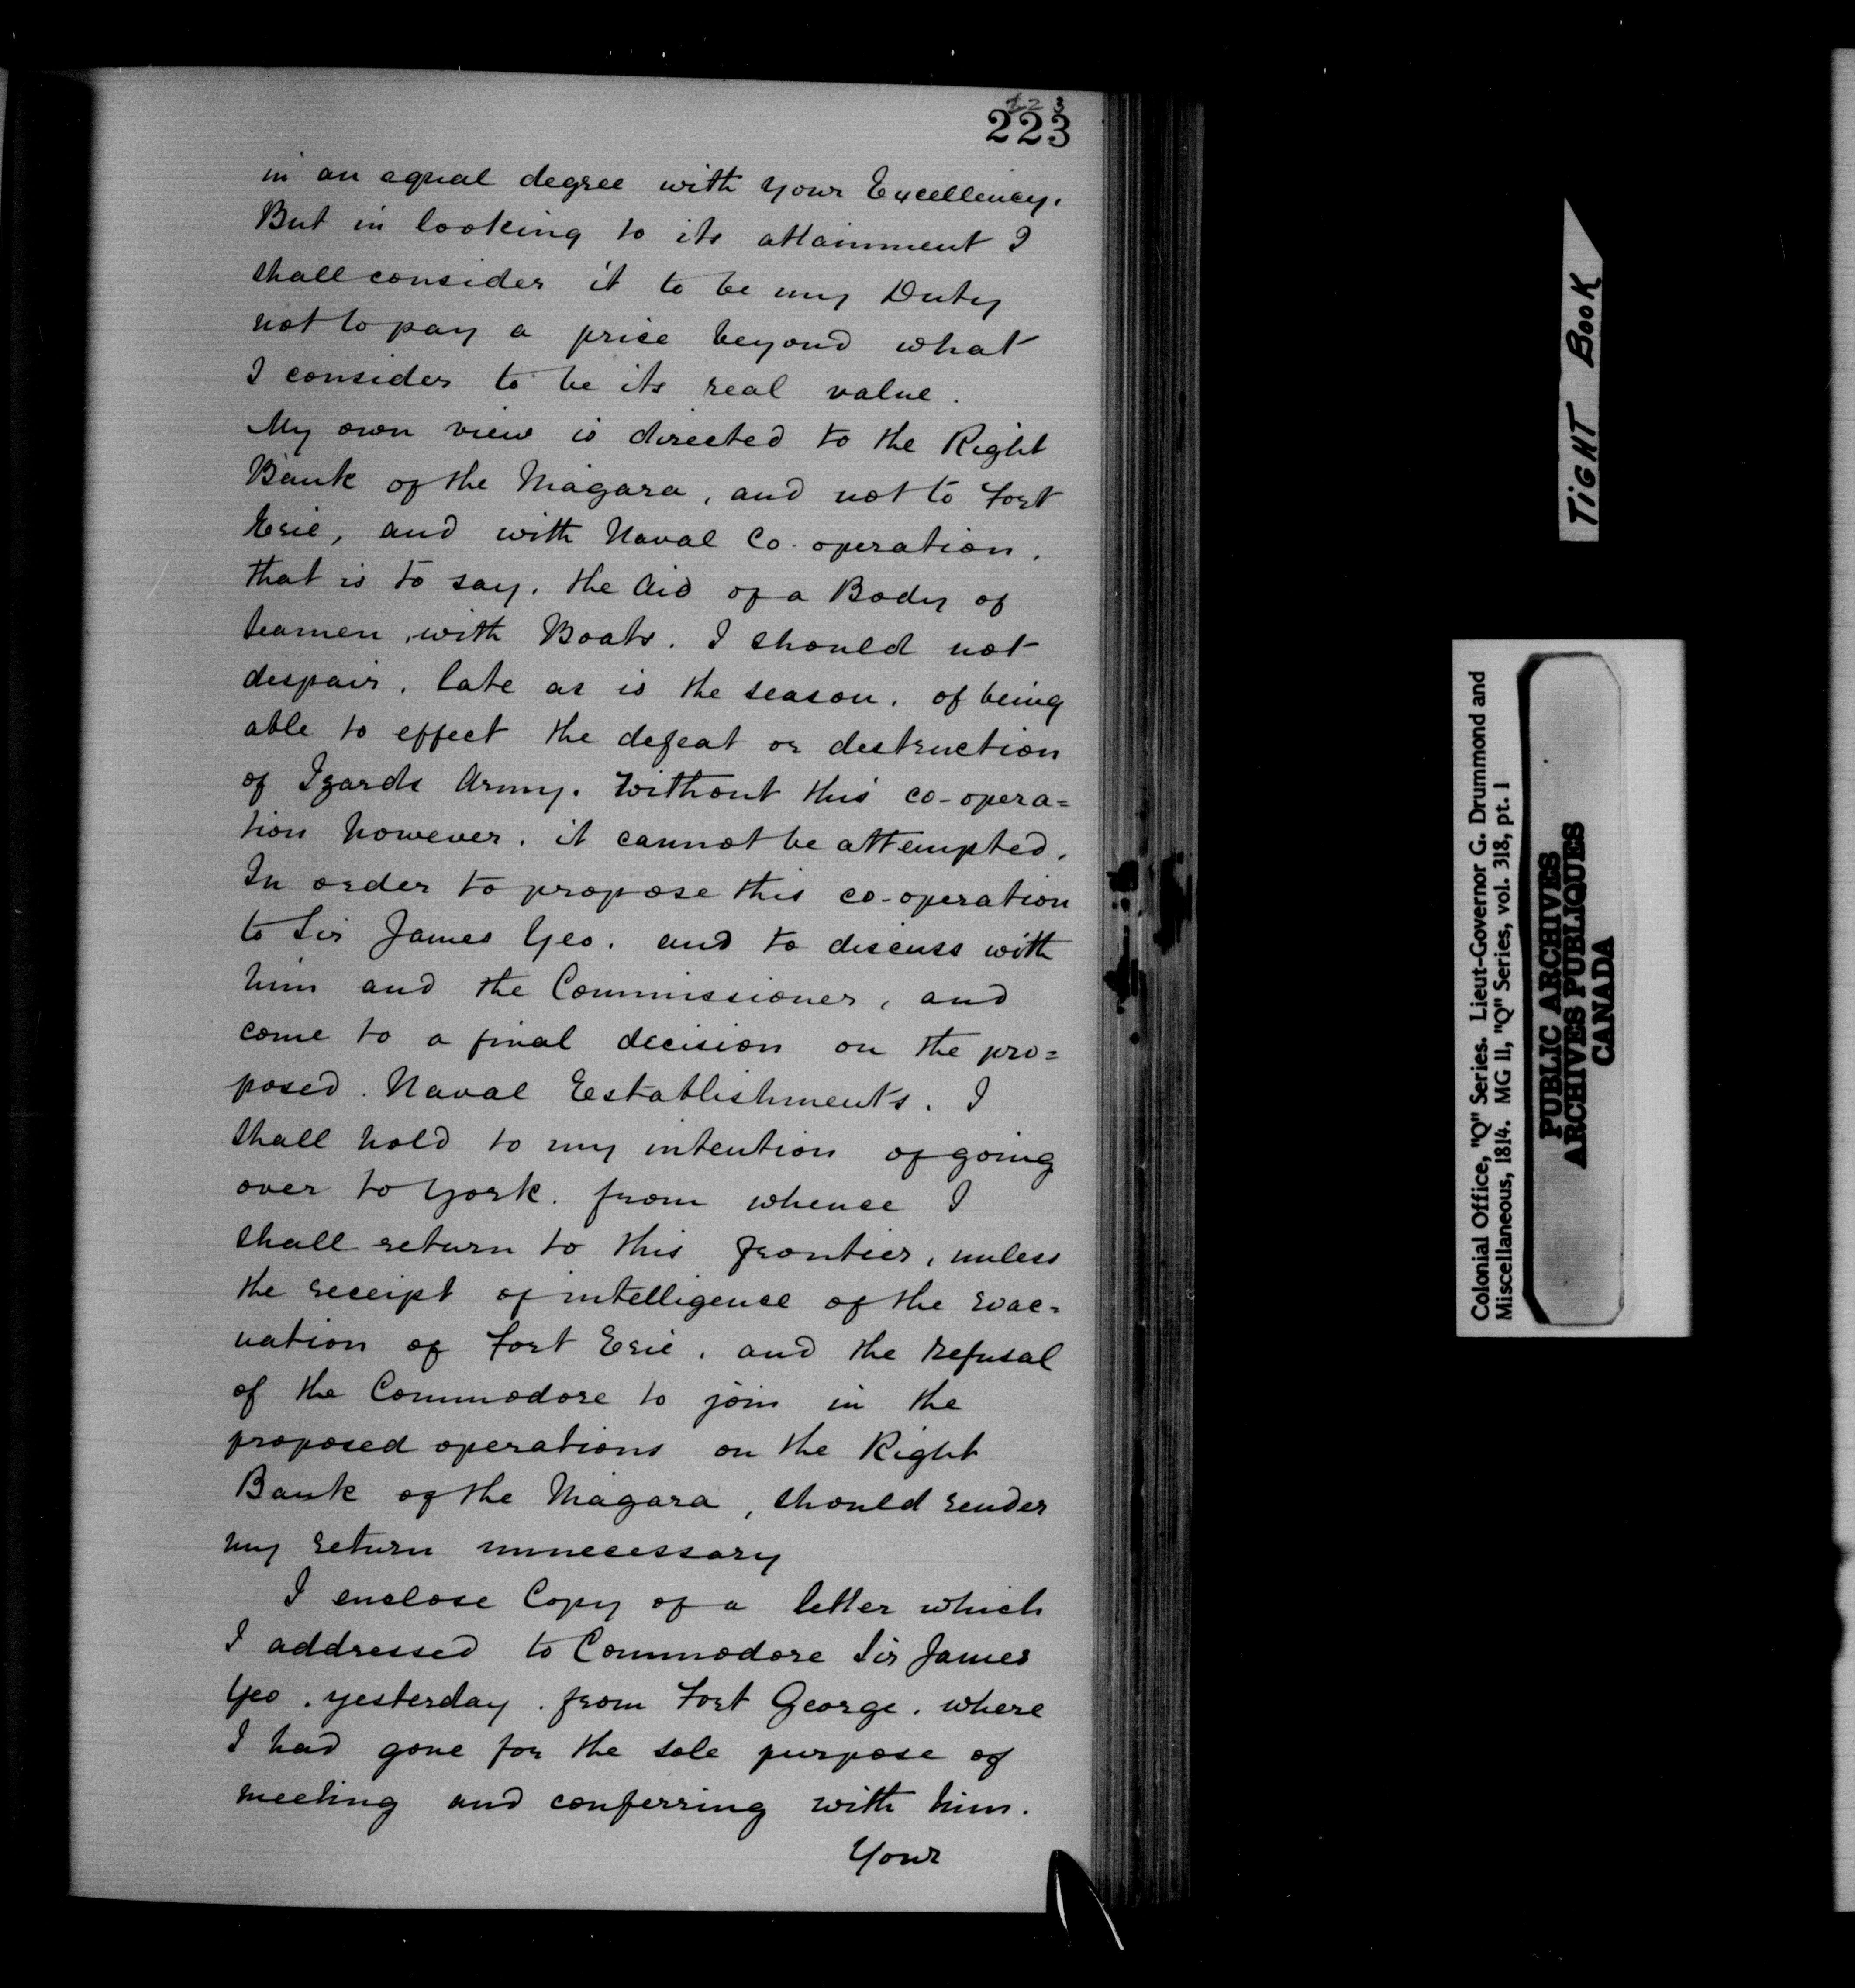 223
223
in an equal degree with your Excellency.
But in looking to its attainment I
shall consider it to be my Duty
not to pay a price beyond what
I consider to be its real value.
My own view is directed to the Right
Bank of the Niagara, and not to Fort
Erie, and with Naval Co-operation,
that is to say, the Aid of a Body of
Seamen, with Boats. I should not
despair, late as is the season, of being
able to effect the defeat or destruction
of Izards Army. Without this co-opera=
tion however, it cannot be attempted.
In order to propose this co-operation
to Sir James Yeo, and to discuss with
him and the Commissioner, and
come to a final decision on the pro=
posed Naval Establishments, I
shall hold to my intention of going
over to York, from whence I
shall return to this frontier, unless
the receipt of intelligence of the evac=
uation of Fort Erie, and the refusal
of the Commodore to join in the
proposed operations on the Right
Bank of the Niagara, should render
my return unnecessary
I enclose Copy of a letter which
I addressed to Commodore Sir James
Yeo, yesterday, from Fort George, where
I had gone for the sole purpose of
meeting and conferring with him.
Your
TIGHT BOOK
Colonial Office, "Q" Series. Lieut-Governor G. Drummond and
Miscellaneous, 1814. MG 11, "Q" Series, vol. 318, pt. 1
PUBLIC ARCHIVES
ARCHIVES PUBLIQUES
CANADA